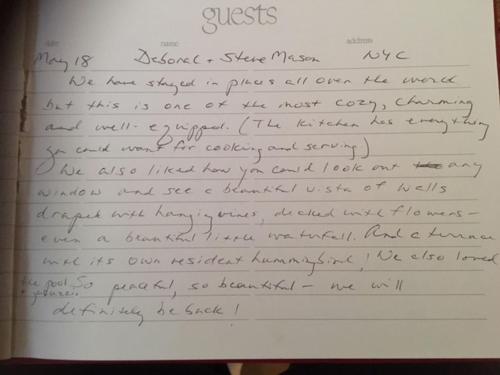 guests
date name address
May 18 Deboral + Steve Mason NYC
We have stayed in places all over the world
but this is one of the most cozy, charming
and well-equipped. (The kitchen has everything
you could want for cooking and serving)
We also liked how you could look out any
window and see a beautiful vista of walls
draped with hanging vines, decked with flowers -
even a beautiful little waterfall. And a terrace
with its own resident hummingbird! We also loved
the pool + jacuzzi. So peaceful, so beautiful - we will
definitely be back!